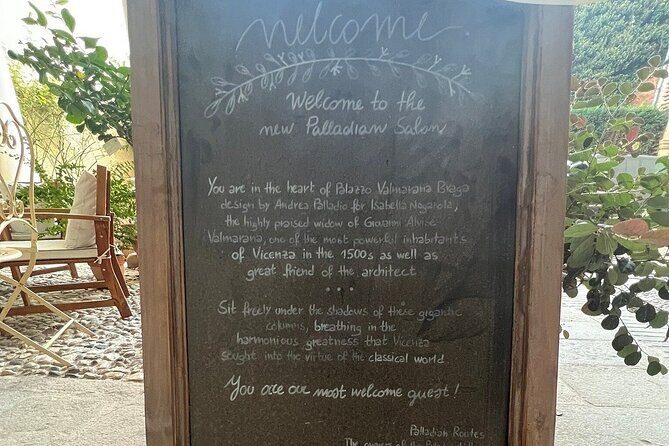 welcome
Welcome to the
new Palladian Salon
You are in the heart of Palazzo Valmarana Braga
design by Andrea Palladio for Isabella Nogarola,
the highly praised widow of Giovanni Alvise
Valmarana, one of the most powerful inhabitants
of Vicenza in the 1500s as well as
great friend of the architect
...
Sit freely under the shadows of these gigantic
columns, breathing in the
harmonious greatness that Vicenza
sought into the virtue of the classical world
You are our most welcome guest!
Palladian Routes
The owners of the